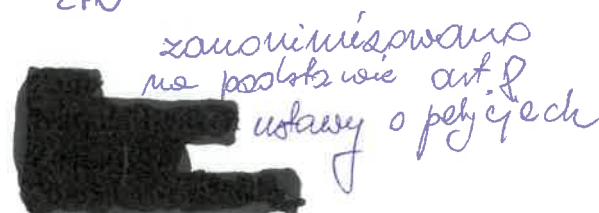 zanonimizowano
na podstawie art. 8
ustawy o petycjach